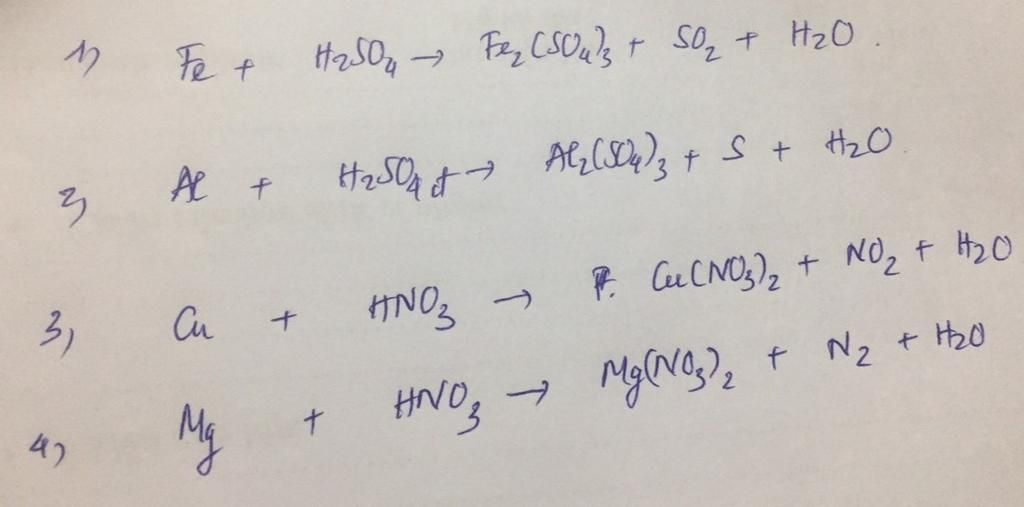 1) Fe + H₂SO₄ → Fe₂(SO₄)₃ + SO₂ + H₂O.
2) Al + H₂SO₄ đ → Al₂(SO₄)₃ + S + H₂O
3) Cu + HNO₃ → Cu(NO₃)₂ + NO₂ + H₂O
4) Mg + HNO₃ → Mg(NO₃)₂ + N₂ + H₂O